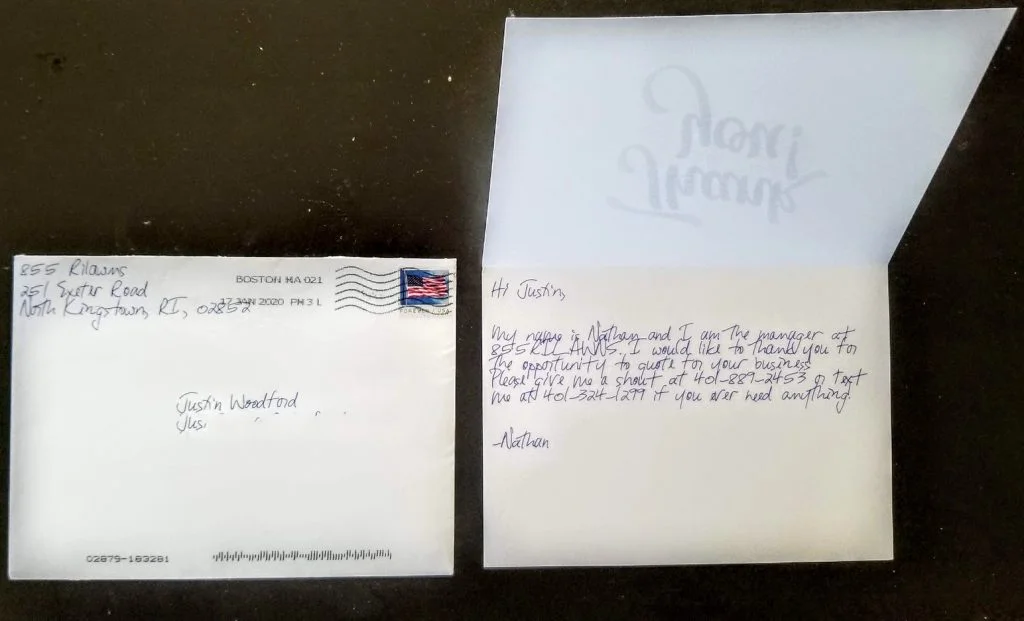 855 Rilawns
251 Exeter Road
North Kingstown, RI, 02852
BOSTON MA 021
17 JAN 2020 PM 3 L
FOREVER / USA
Justin Woodford
Jus
02879-183281
Thank
you!
Hi Justin,
My name is Nathan and I am the manager at
855RILAWNS. I would like to thank you for
the opportunity to quote for your business
Please give me a shout at 401-889-2453 or text
me at 401-324-1299 if you ever need anything.
-Nathan